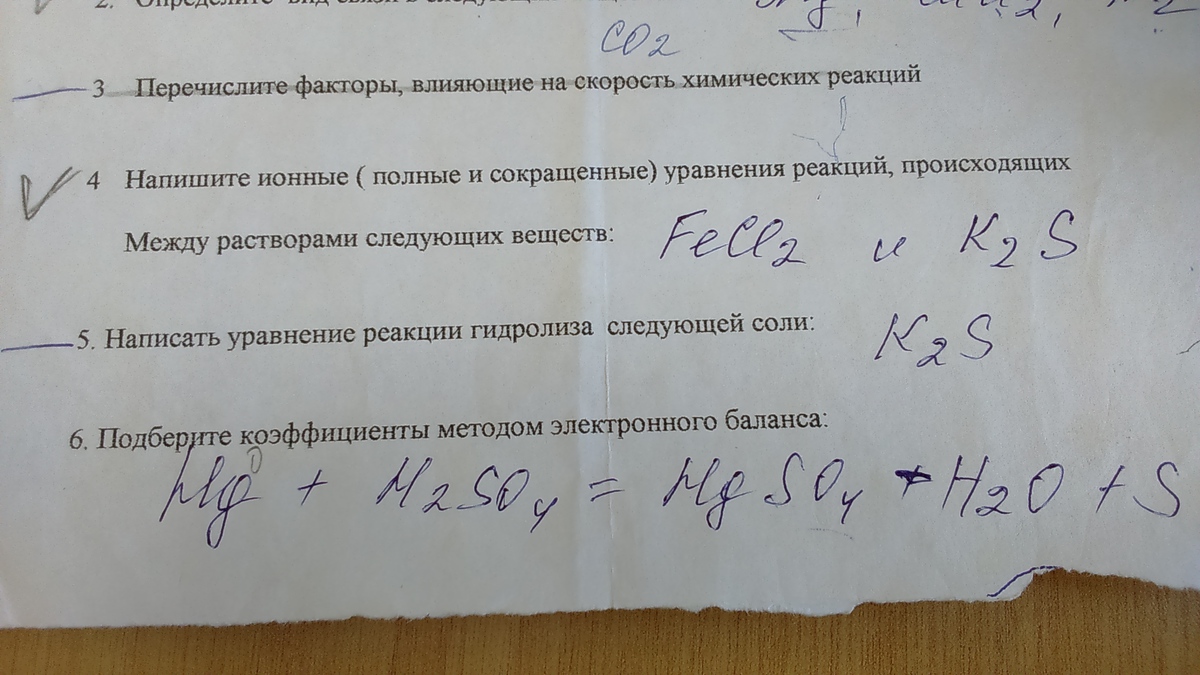 CO2
3 Перечислите факторы, влияющие на скорость химических реакций
4 Напишите ионные ( полные и сокращенные) уравнения реакций, происходящих
Между растворами следующих веществ: FeCl2 и K2S
5. Написать уравнение реакции гидролиза следующей соли: K2S
6. Подберите коэффициенты методом электронного баланса:
Mg0 + H2SO4 = MgSO4 + H2O + S